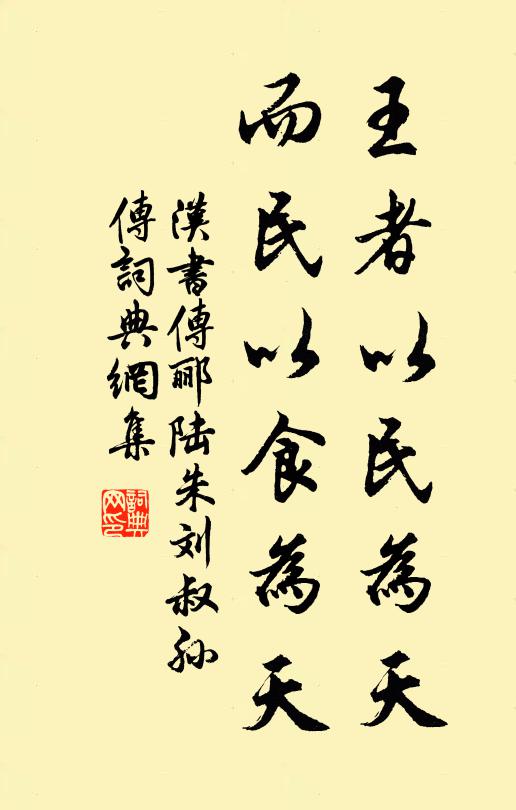 王者以民為天
而民以食為天
漢書傳酈陸朱刘叔孙
傳詞典網集
詞典網印